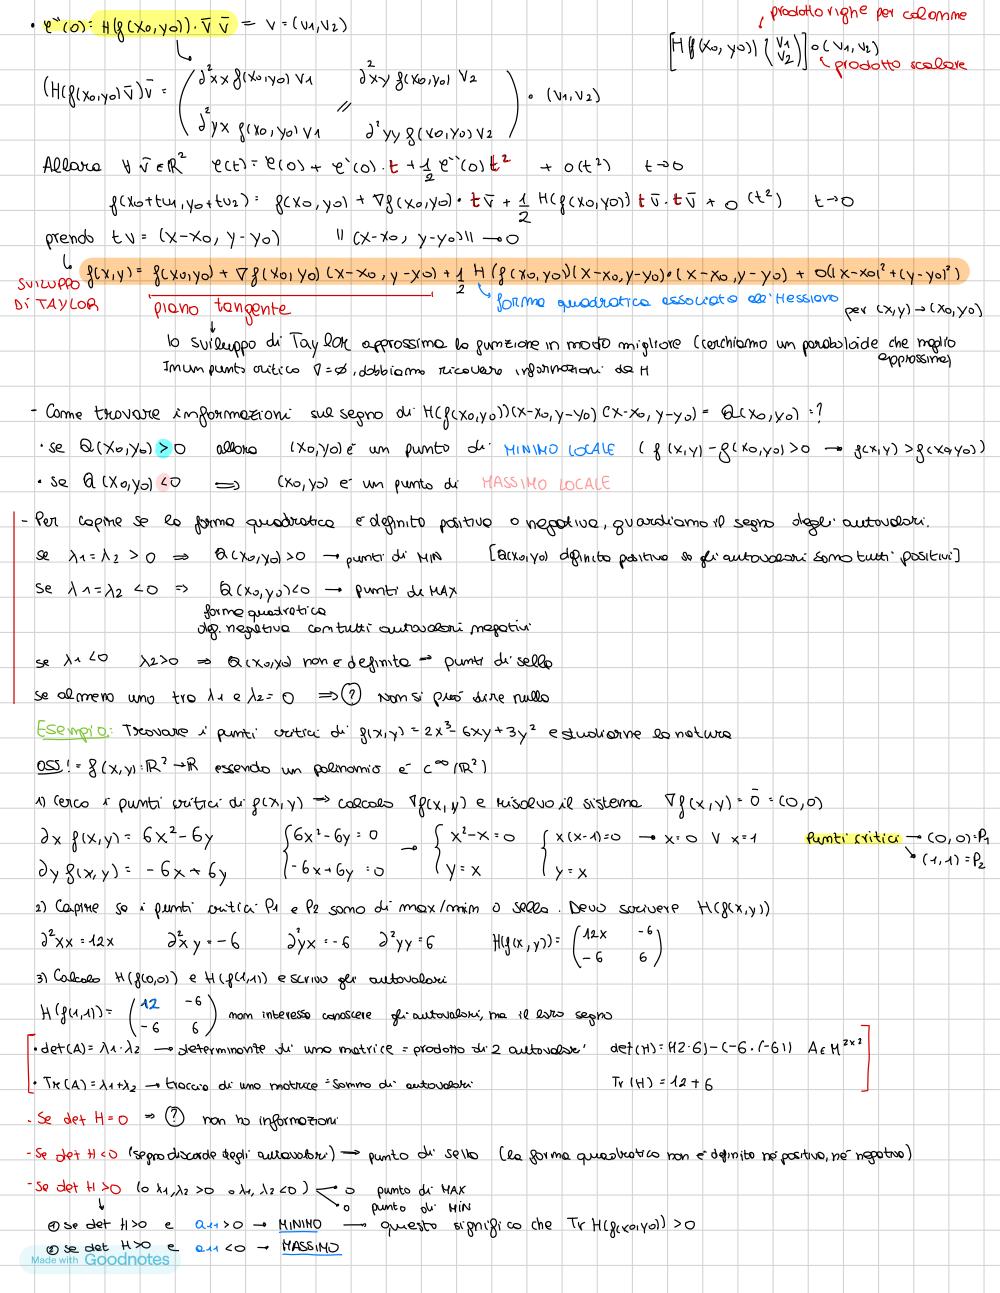 • φ''(0) = H(f(x0,y0)) · v̄ v̄ = V = (v1,v2)
prodotto righe per colonne
[H f(x0,y0)) (v1 v2)] o (v1,v2)
prodotto scalare
(H(f(x0,y0) v̄) v̄ = ( ∂²xx f(x0,y0) v1   ∂²xy f(x0,y0) v2
// · (v1,v2)
∂²yx f(x0,y0) v1   ∂²yy f(x0,y0) v2 )
Allora ∀ v̄ ∈ ℝ² φ(t) = φ(0) + φ'(0) · t + 1/2 φ''(0) t² + o(t²) t→0
f(x0+tv1, y0+tv2) = f(x0,y0) + ∇f(x0,y0) • t v̄ + 1/2 H(f(x0,y0)) t v̄ · t v̄ + o (t²) t→0
prendo tv = (x-x0, y-y0) || (x-x0, y-y0)|| → 0
SVILUPPO DI TAYLOR
f(x,y) = f(x0,y0) + ∇f(x0,y0) (x-x0, y-y0) + 1/2 H (f(x0,y0))(x-x0,y-y0) • (x-x0, y-y0) + o((x-x0)² + (y-y0)²)
piano tangente
forma quadratica associata all'Hessiana
per (x,y) → (x0,y0)
lo sviluppo di Taylor approssima la funzione in modo migliore (cerchiamo un paraboloide che meglio approssima)
In un punto critico ∇=∅, dobbiamo ricavare informazioni da H
- Come trovare informazioni sul segno di H(f(x0,y0))(x-x0,y-y0) (x-x0, y-y0) = Q(x0,y0) = ?
• se Q(x0,y0) > 0 allora (x0,y0) è un punto di MINIMO LOCALE (f(x,y) - f(x0,y0) > 0 → f(x,y) > f(x0,y0))
• se Q(x0,y0) < 0 ⟹ (x0,y0) è un punto di MASSIMO LOCALE
- Per capire se la forma quadratica è definita positiva o negativa, guardiamo il segno degli autovalori.
se λ1=λ2 > 0 ⇒ Q(x0,y0) > 0 → punti di MIN [Q(x0,y0) definita positiva se gli autovalori sono tutti positivi]
se λ1=λ2 < 0 ⇒ Q(x0,y0) < 0 → punti di MAX
forma quadratica
def. negativa con tutti autovalori negativi
se λ1<0 λ2>0 ⇒ Q(x0,y0) non è definita → punti di sella
se almeno uno tra λ1 e λ2 = 0 ⇒ ? Non si può dire nulla
Esempio: Trovare i punti critici di f(x,y) = 2x³ - 6xy + 3y² e studiarne la natura
OSS! = f(x,y): ℝ²→ℝ essendo un polinomio è C^∞(ℝ²)
1) cerco i punti critici di f(x,y) → calcolo ∇f(x,y) e risolvo il sistema ∇f(x,y) = 0̄ = (0,0)
∂x f(x,y) = 6x² - 6y   { 6x² - 6y = 0 → { x² - x = 0   { x(x-1) = 0 → x=0 ∨ x=1   Punti critici → (0,0) = P1
∂y f(x,y) = -6x + 6y   -6x + 6y = 0   y = x   y = x   (1,1) = P2
2) Capire se i punti critici P1 e P2 sono di max/min o sella. Devo scrivere H(f(x,y))
∂²xx = 12x   ∂²xy = -6   ∂²yx = -6   ∂²yy = 6   H(f(x,y)) = ( 12x  -6
-6  6 )
3) Calcolo H(f(0,0)) e H(f(1,1)) e scrivo gli autovalori
H(f(1,1)) = ( 12  -6
-6  6 ) non interessa conoscere gli autovalori, ma il loro segno
• det(A) = λ1·λ2 → determinante di una matrice = prodotto di 2 autovalori   det(H) = (12·6) - (-6·(-6)) A ∈ M^2x2
• Tr(A) = λ1+λ2 → traccia di una matrice = somma di autovalori   Tr(H) = 12+6
- Se det H = 0 ⇒ ? non ho informazioni
- Se det H < 0 (segno discorde degli autovalori) → punto di sella (la forma quadratica non è definita nè positiva, nè negativa)
- Se det H > 0 (o λ1,λ2 > 0 o λ1,λ2 < 0) o punto di MAX
o punto di MIN
① se det H>0 e a11 > 0 → MINIMO → questo significa che Tr H(f(x0,y0)) > 0
② se det H>0 e a11 < 0 → MASSIMO
Made with Goodnotes